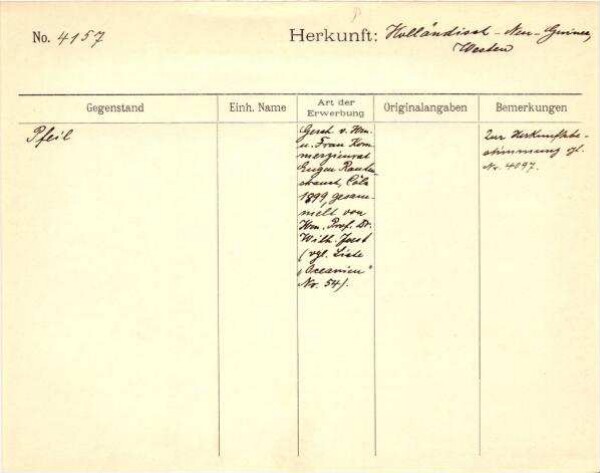 No. 4157
Herkunft: Holländisch-Neu-Guinea,
Westen
Gegenstand
Einh. Name
Art der
Erwerbung
Originalangaben
Bemerkungen
Pfeil
Gesch. v. Hrn.
u. Frau Kom-
merzienrat
Eugen Rauten-
strauch, Cöln
1899, gesam-
melt von
Hrn. Prof. Dr.
Wilh. Joest
(vgl. Liste
"Oceanien"
Nr. 54).
Zur Herkunftsbe-
stimmung vgl.
Nr. 4097.